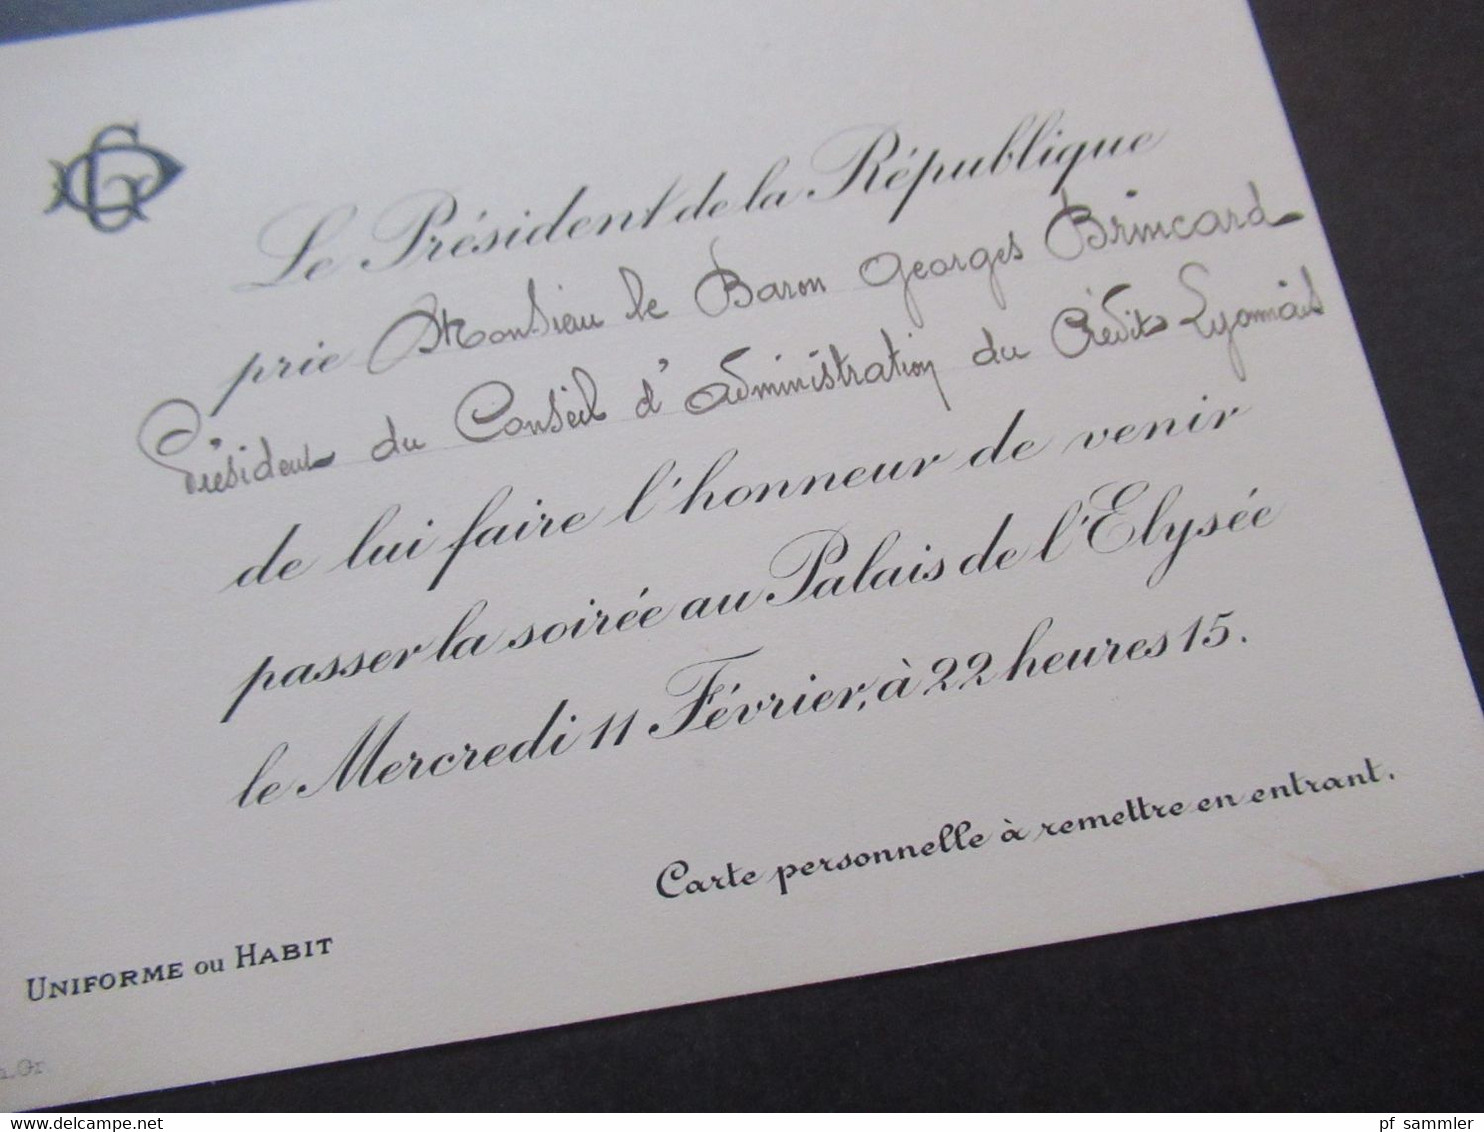 GD
Le Président de la République
prie Monsieur le Baron Georges Brincard
Président du Conseil d'Administration du Crédit Lyonnais
de lui faire l'honneur de venir
passer la soirée au Palais de l'Elysée
le Mercredi 11 Février, à 22 heures 15.
Carte personnelle à remettre en entrant.
UNIFORME OU HABIT
www.delcampe.net
pf_sammler